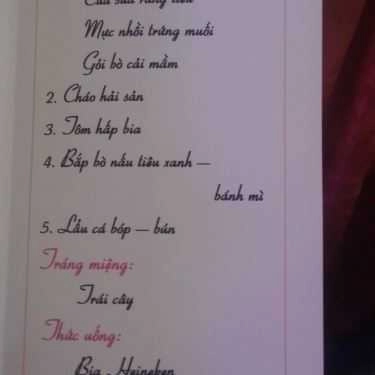 Mực nhồi trứng muối
Gỏi bò cải mầm
2. Cháo hải sản
3. Tôm hấp bia
4. Bắp bò nấu tiêu xanh —
bánh mì
5. Lẩu cá bóp — bún
Tráng miệng:
Trái cây
Thức uống:
Bia - Heineken